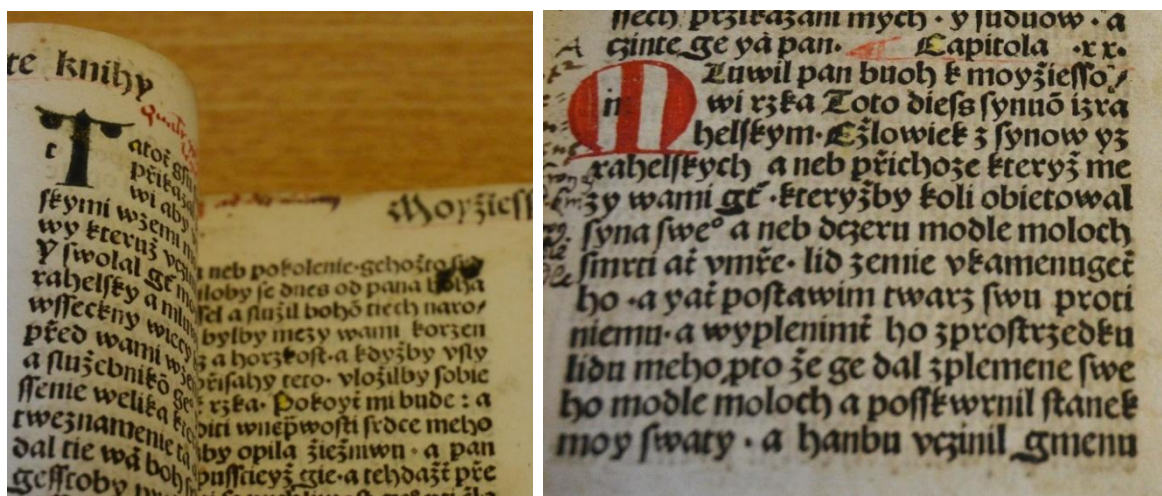 te knihy
T
t
atoť gsu
přikaza
wi aby
skymi wzemi
wy kteruž vczi
Y swolal gt̃
rahelsky a mlu
wssecky wiecy
před wami
a služebnikō ge
ssenie welika
twe znamenie
dal tie wā boh
gesstoby
Moyziess
a neb pokolenie · gehožto
iloby se dnes od pana boha
ssel a služil bohō tiech naro/
bylby mezy wami korzen
z a horzkost · a kdyžby vsly
přisahy teto · vložilby sobie
rzka · Pokoyt̃ mi bude : a
biti wnep̄wosti srdce meho
aby opila žiežniwu · a pan
pusscieyž gie · a tehdažt̃ pře
ssech przikazani mych · y suduow · a
czinte ge ya pan · Capitola · xx ·
M Luwil pan buoh k moyžiesso/
m wi rzka Toto diess synuō izra
helskym · Cžlowiek z synow yz
rahelskych a neb přichoze kteryž me
zy wami gt̃ · kteryžby koli obietowal
syna sweº a neb dczeru modle moloch
smrti at̃ vmře · lid zemie vkamenuget̃
ho · a yat̃ postawim twarz swu proti
niemu · a wyplenimt̃ ho zprostrzedku
lidu meho ꝓto že ge dal zplemene swe
ho modle moloch a posskwrnil stanek
moy swaty · a hanbu vczinil gmenu